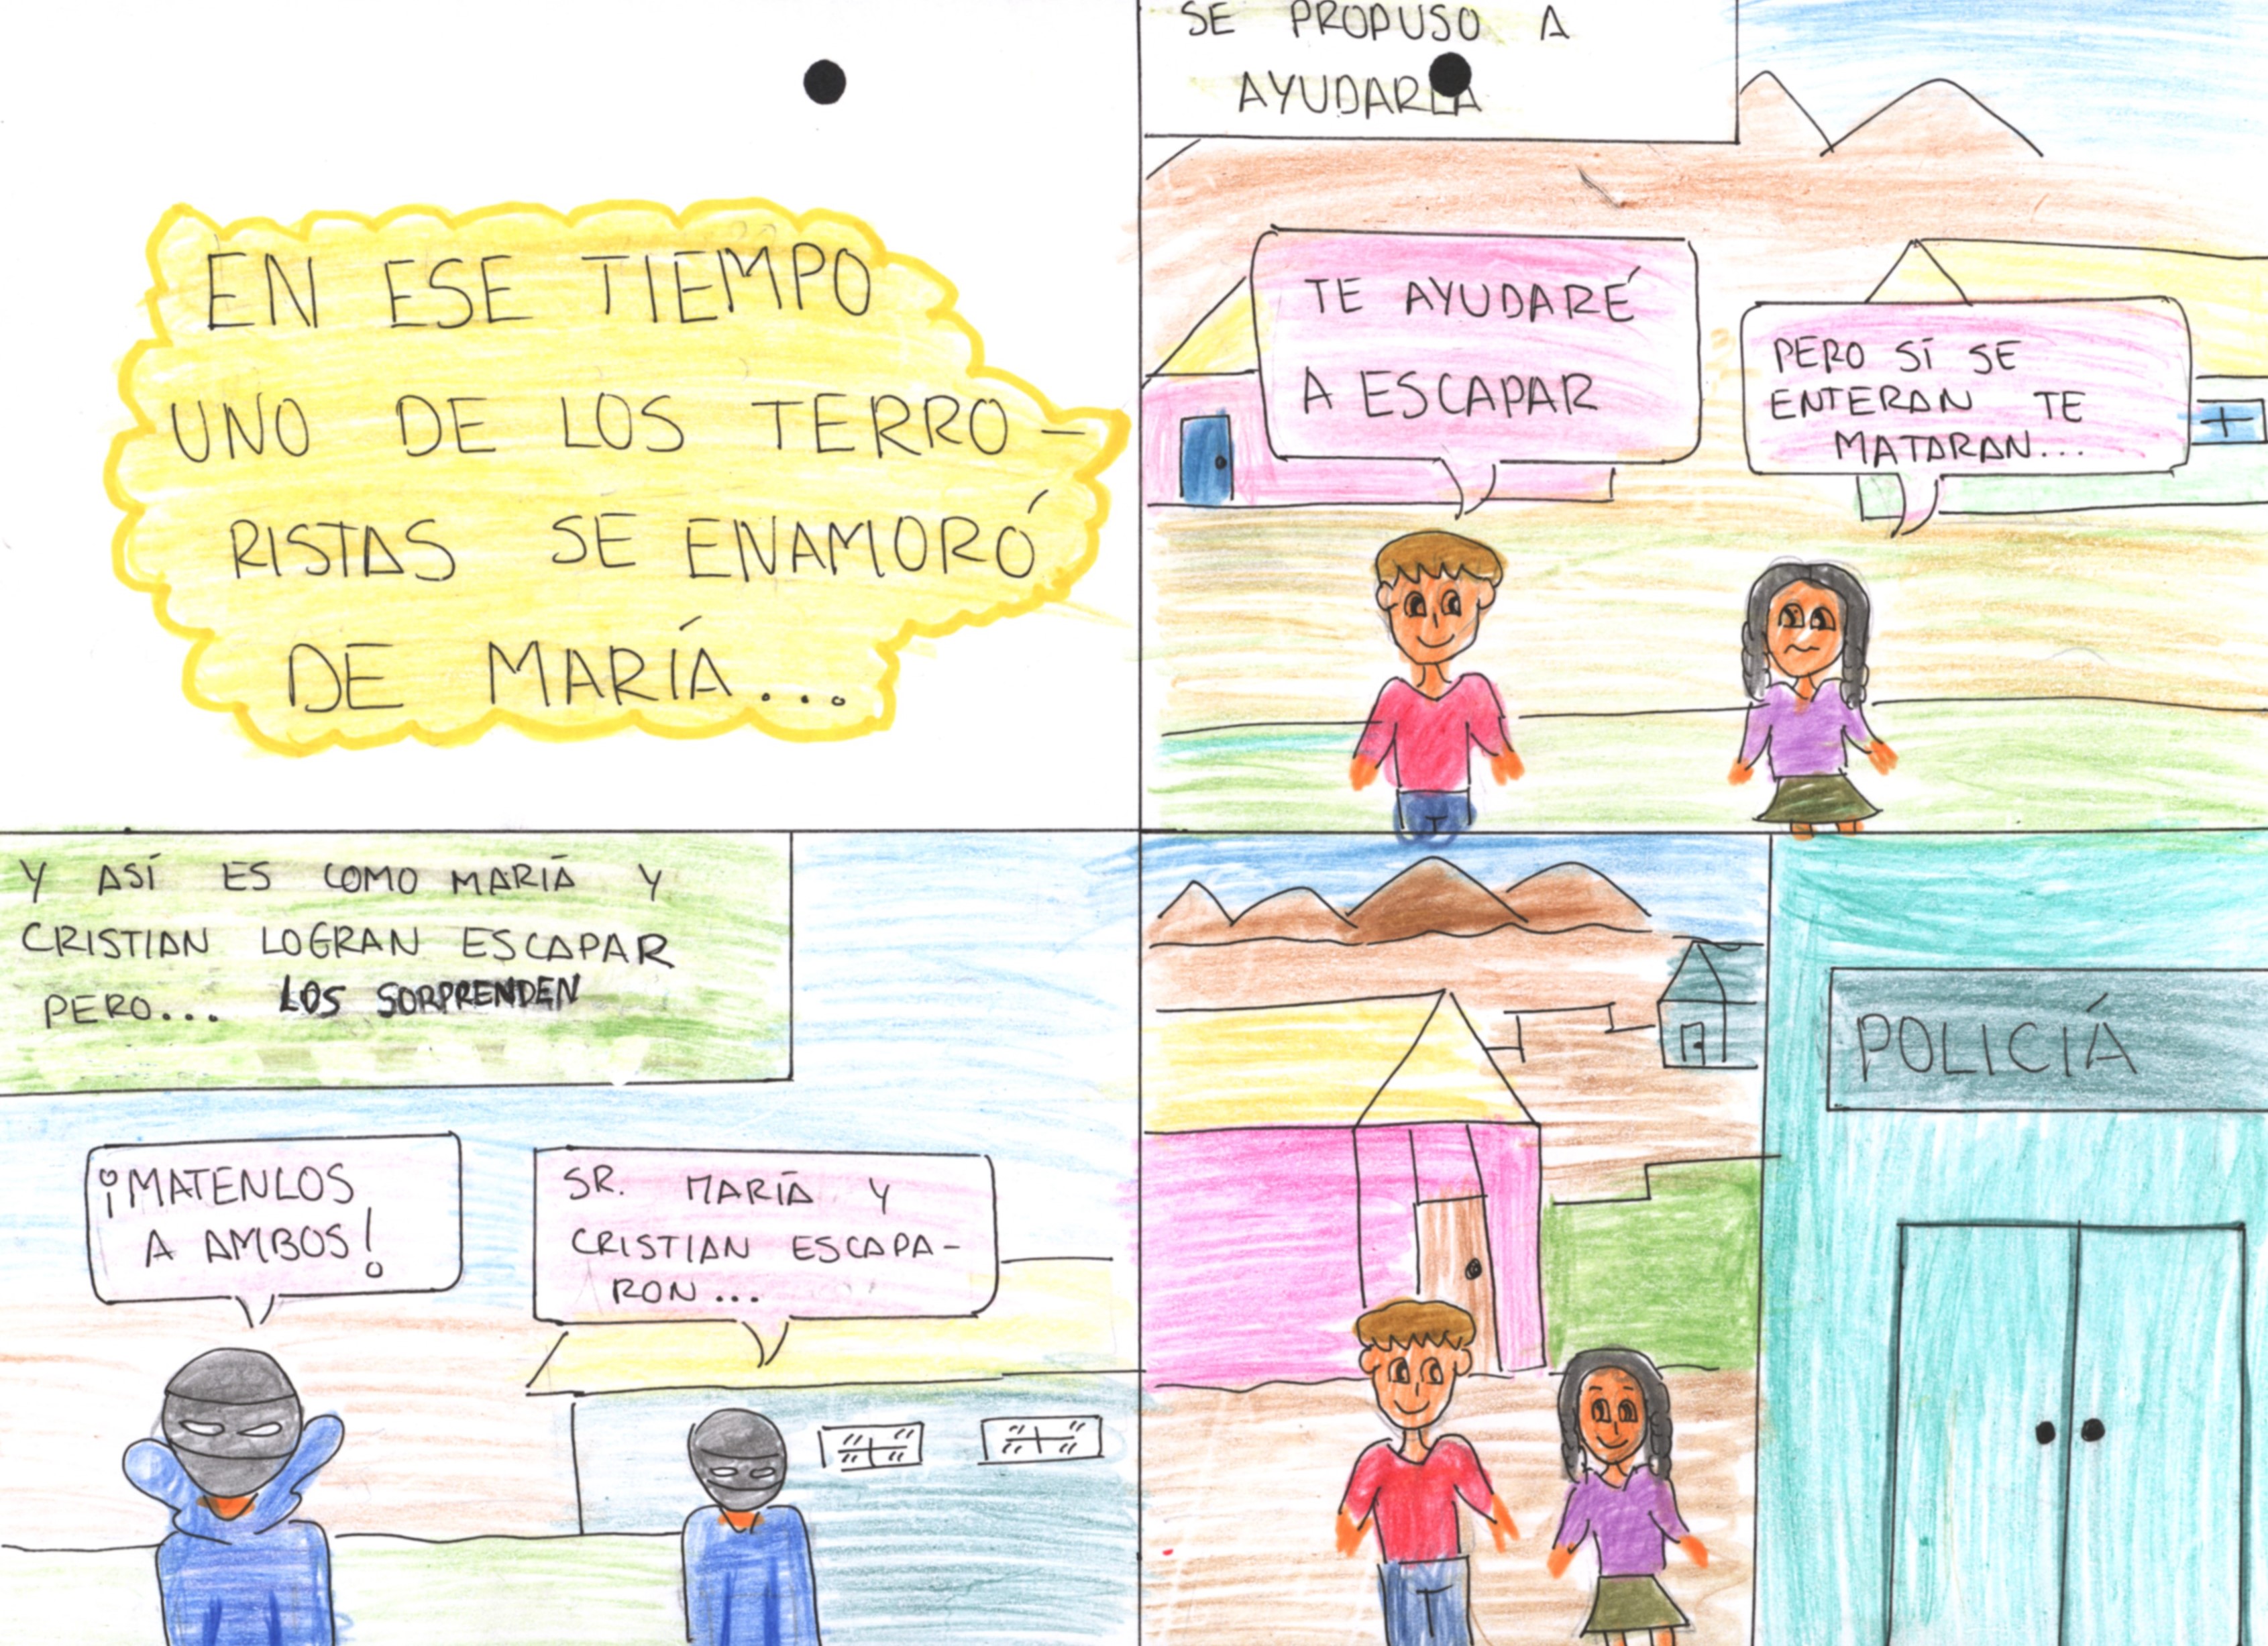 EN ESE TIEMPO
UNO DE LOS TERRO-
RISTAS SE ENAMORÓ
DE MARÍA...
SE PROPUSO A
AYUDARLA
TE AYUDARÉ
A ESCAPAR
PERO SÍ SE
ENTERAN TE
MATARAN...
Y ASÍ ES COMO MARÍA Y
CRISTIAN LOGRAN ESCAPAR
PERO... LOS SORPRENDEN
¡MATENLOS
A AMBOS!
SR. MARÍA Y
CRISTIAN ESCAPA-
RON...
POLICIÁ